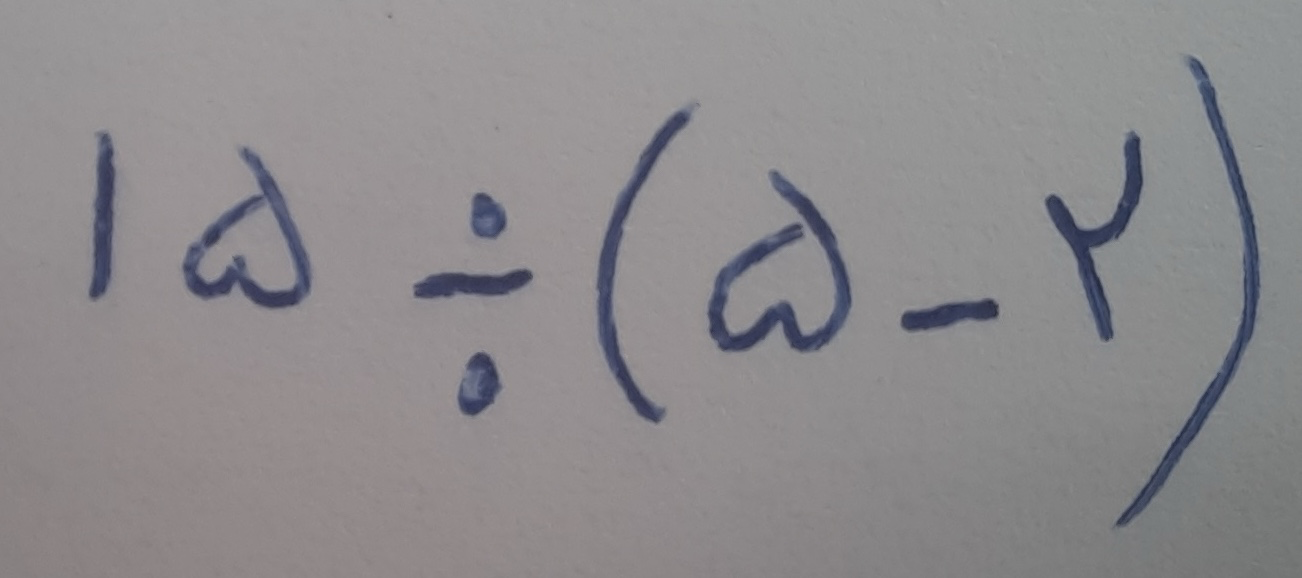 ۱۵ ÷ (۵ - ۲)